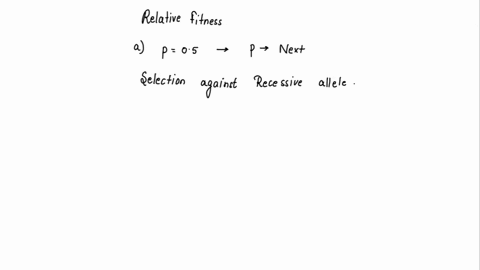 Relative fitness
a) p = 0.5 → p → Next
Selection against Recessive allele.